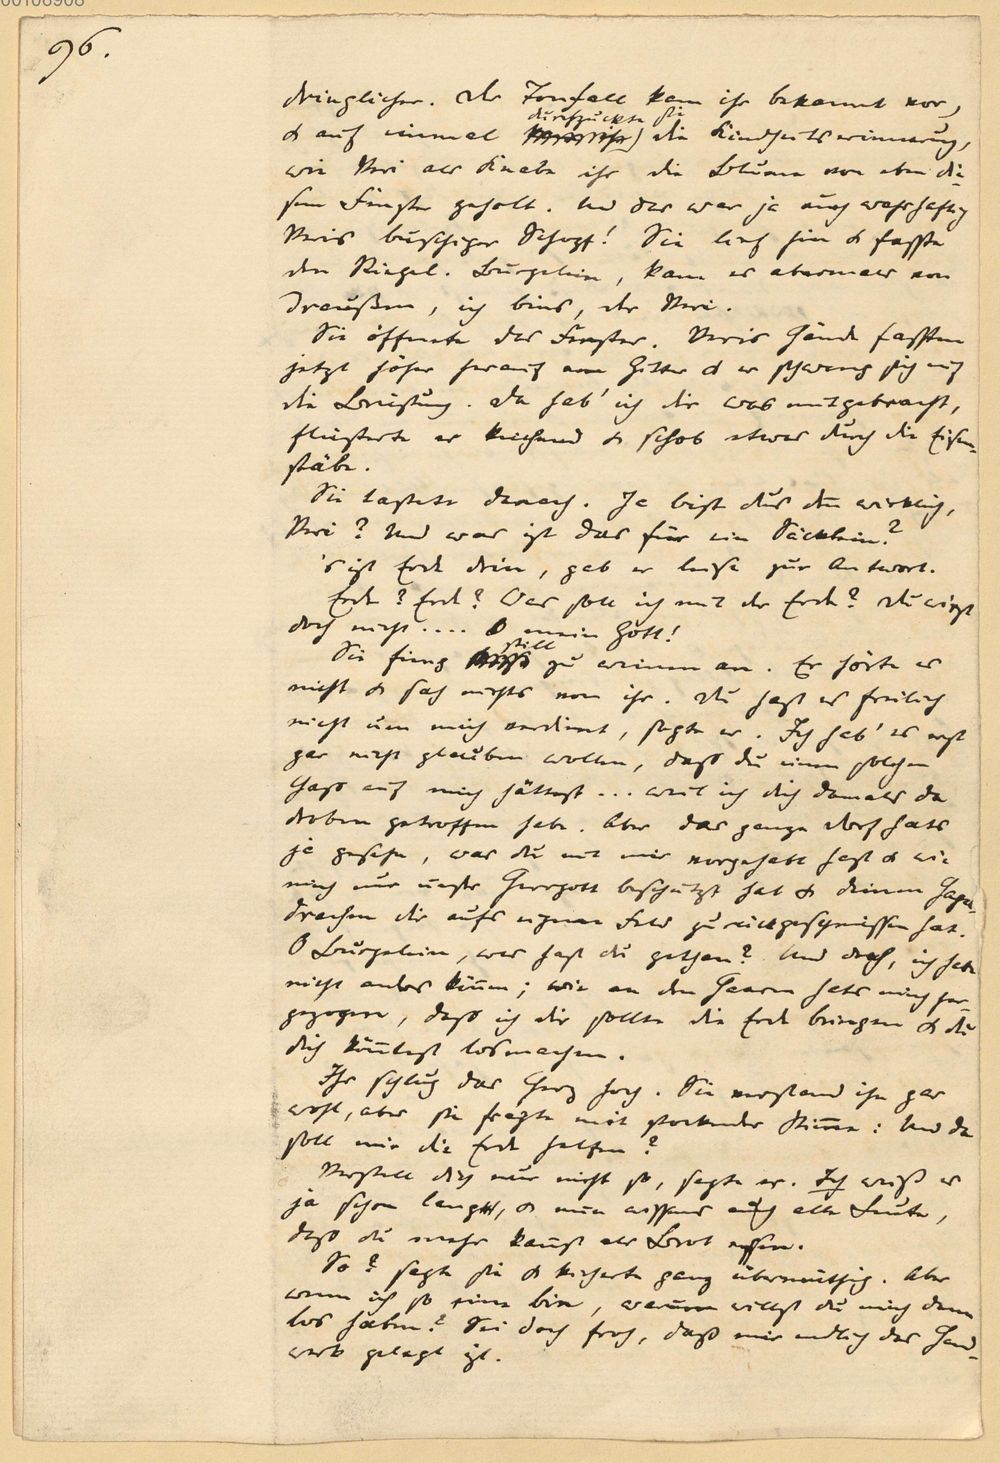 96.
dringlicher. Der Tonfall kam ihr bekannt vor,
durchzuckte sie
& auf einmal die Kindheitserinnerung,
wie Veri als Knabe ihr die Blume von eben die-
sem Fenster geholt. Und das war ja auch wahrhaftig
Veris buschiger Schopf! Sie lief hin & faßte
den Riegel. Burgelein, kam es abermals von
draußen, ich bins, der Veri.
Sie öffnete das Fenster. Veris Hände faßten
jetzt höher herauf am Gitter & er schwang sich auf
die Brüstung. Da hab' ich dir was mitgebracht,
flüsterte er keichend & schob etwas durch die Eisen-
stäbe.
Sie tastete danach. Ja bist dus den wirklich,
Veri? Und was ist das für ein Säcklein?
's ist Erde drin, gab er leise zur Antwort.
Erde? Erde? Was soll ich mit der Erde? Du wirst
doch nicht .... O mein Gott!
still
Sie fieng zu weinen an. Er hörte es
nicht & sah nichts von ihr. Du hast es freilich
nicht um mich verdient, sagte er. Ich hab' es erst
gar nicht glauben wollen, daß du einen solchen
Haß auf mich hättest ... weil ich dich damals da
droben getroffen habe. Aber das ganze Dorf hats
ja gesehn, was du mit mir vorgehabt hast & wie
mich nur unser Herrgott beschützt hat & deinen Hagel-
drachen dir aufs eigene Feld zurückgeschmissen hat.
O Burgelein, was hast du gethan? Und doch, ich habe
nicht anders können; wie an den Haaren hats mich her-
gezogen, daß ich dir sollte die Erde bringen & du
dich könntest losmachen.
Ihr schlug das Herz hoch. Sie verstand ihn gar
wohl, aber sie fragte mit stockender Stimme: Und da
soll mir die Erde helfen?
Verstell dich nur nicht so, sagte er. Ich weiß es
ja schon längst, & nun wissens auch alle Leute,
daß du mehr kannst als Brot essen.
So? sagte sie & kicherte ganz übermüthig. Aber
wenn ich so eine bin, warum willst du mich denn
los haben? Sei doch froh, daß mir endlich das Hand-
werk gelegt ist.